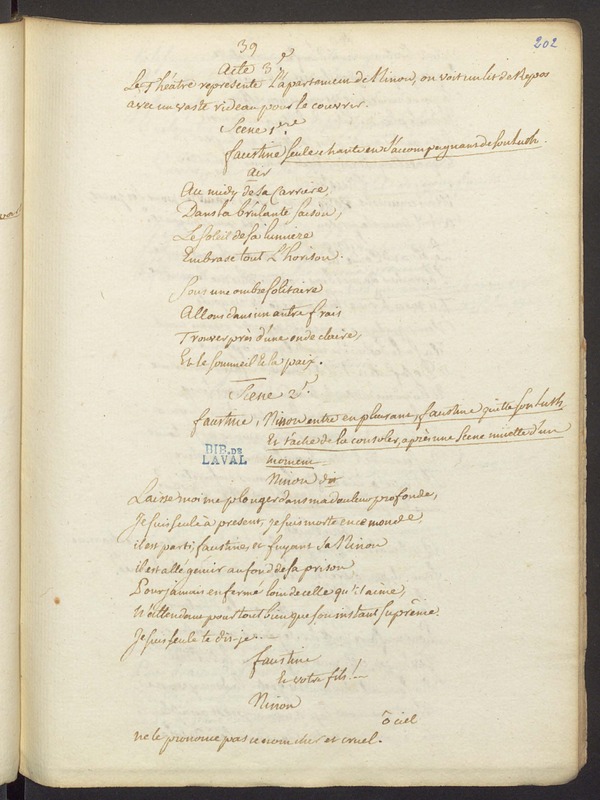 39
202
Acte 3e
Le Théatre represente l'apartement de Ninon, on voit un lit de Repos
avec un vaste rideau pour le couvrir.
Scene 1ere
faustine seule chante en s'accompagnant de son Luth.
air
Au midy de sa Carriere,
Dans la brûlante saison,
Le soleil de sa lumiere
Embrase tout L'horison.
Sous une ombre solitaire
Allons dans un antre frais
Trouver près d'une onde claire,
Et le sommeil et la paix.
Scene 2e
faustine, Ninon entre en pleurant, faustine quitte son Luth
et tache de la consoler, après une Scene muette d'un
moment.
BIB. DE
LAVAL
Ninon dit
Laisse moi me plonger dans ma douleur profonde,
Je suis seule à present, je suis morte en ce monde
il est parti faustine, et fuyant sa Ninon
il est allé gémir au fond de sa prison
Pour jamais enfermé loin de celle qu'il aime,
N'attendant pour tout bien que son instant suprême.
Je suis seule te dis-je.
faustine
Et votre fils!
Ninon
ô ciel
ne le prononce pas ce nom cher et cruel.